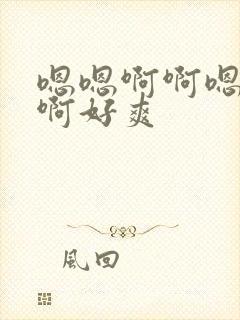 嗯嗯啊啊嗯
啊好爽
風回